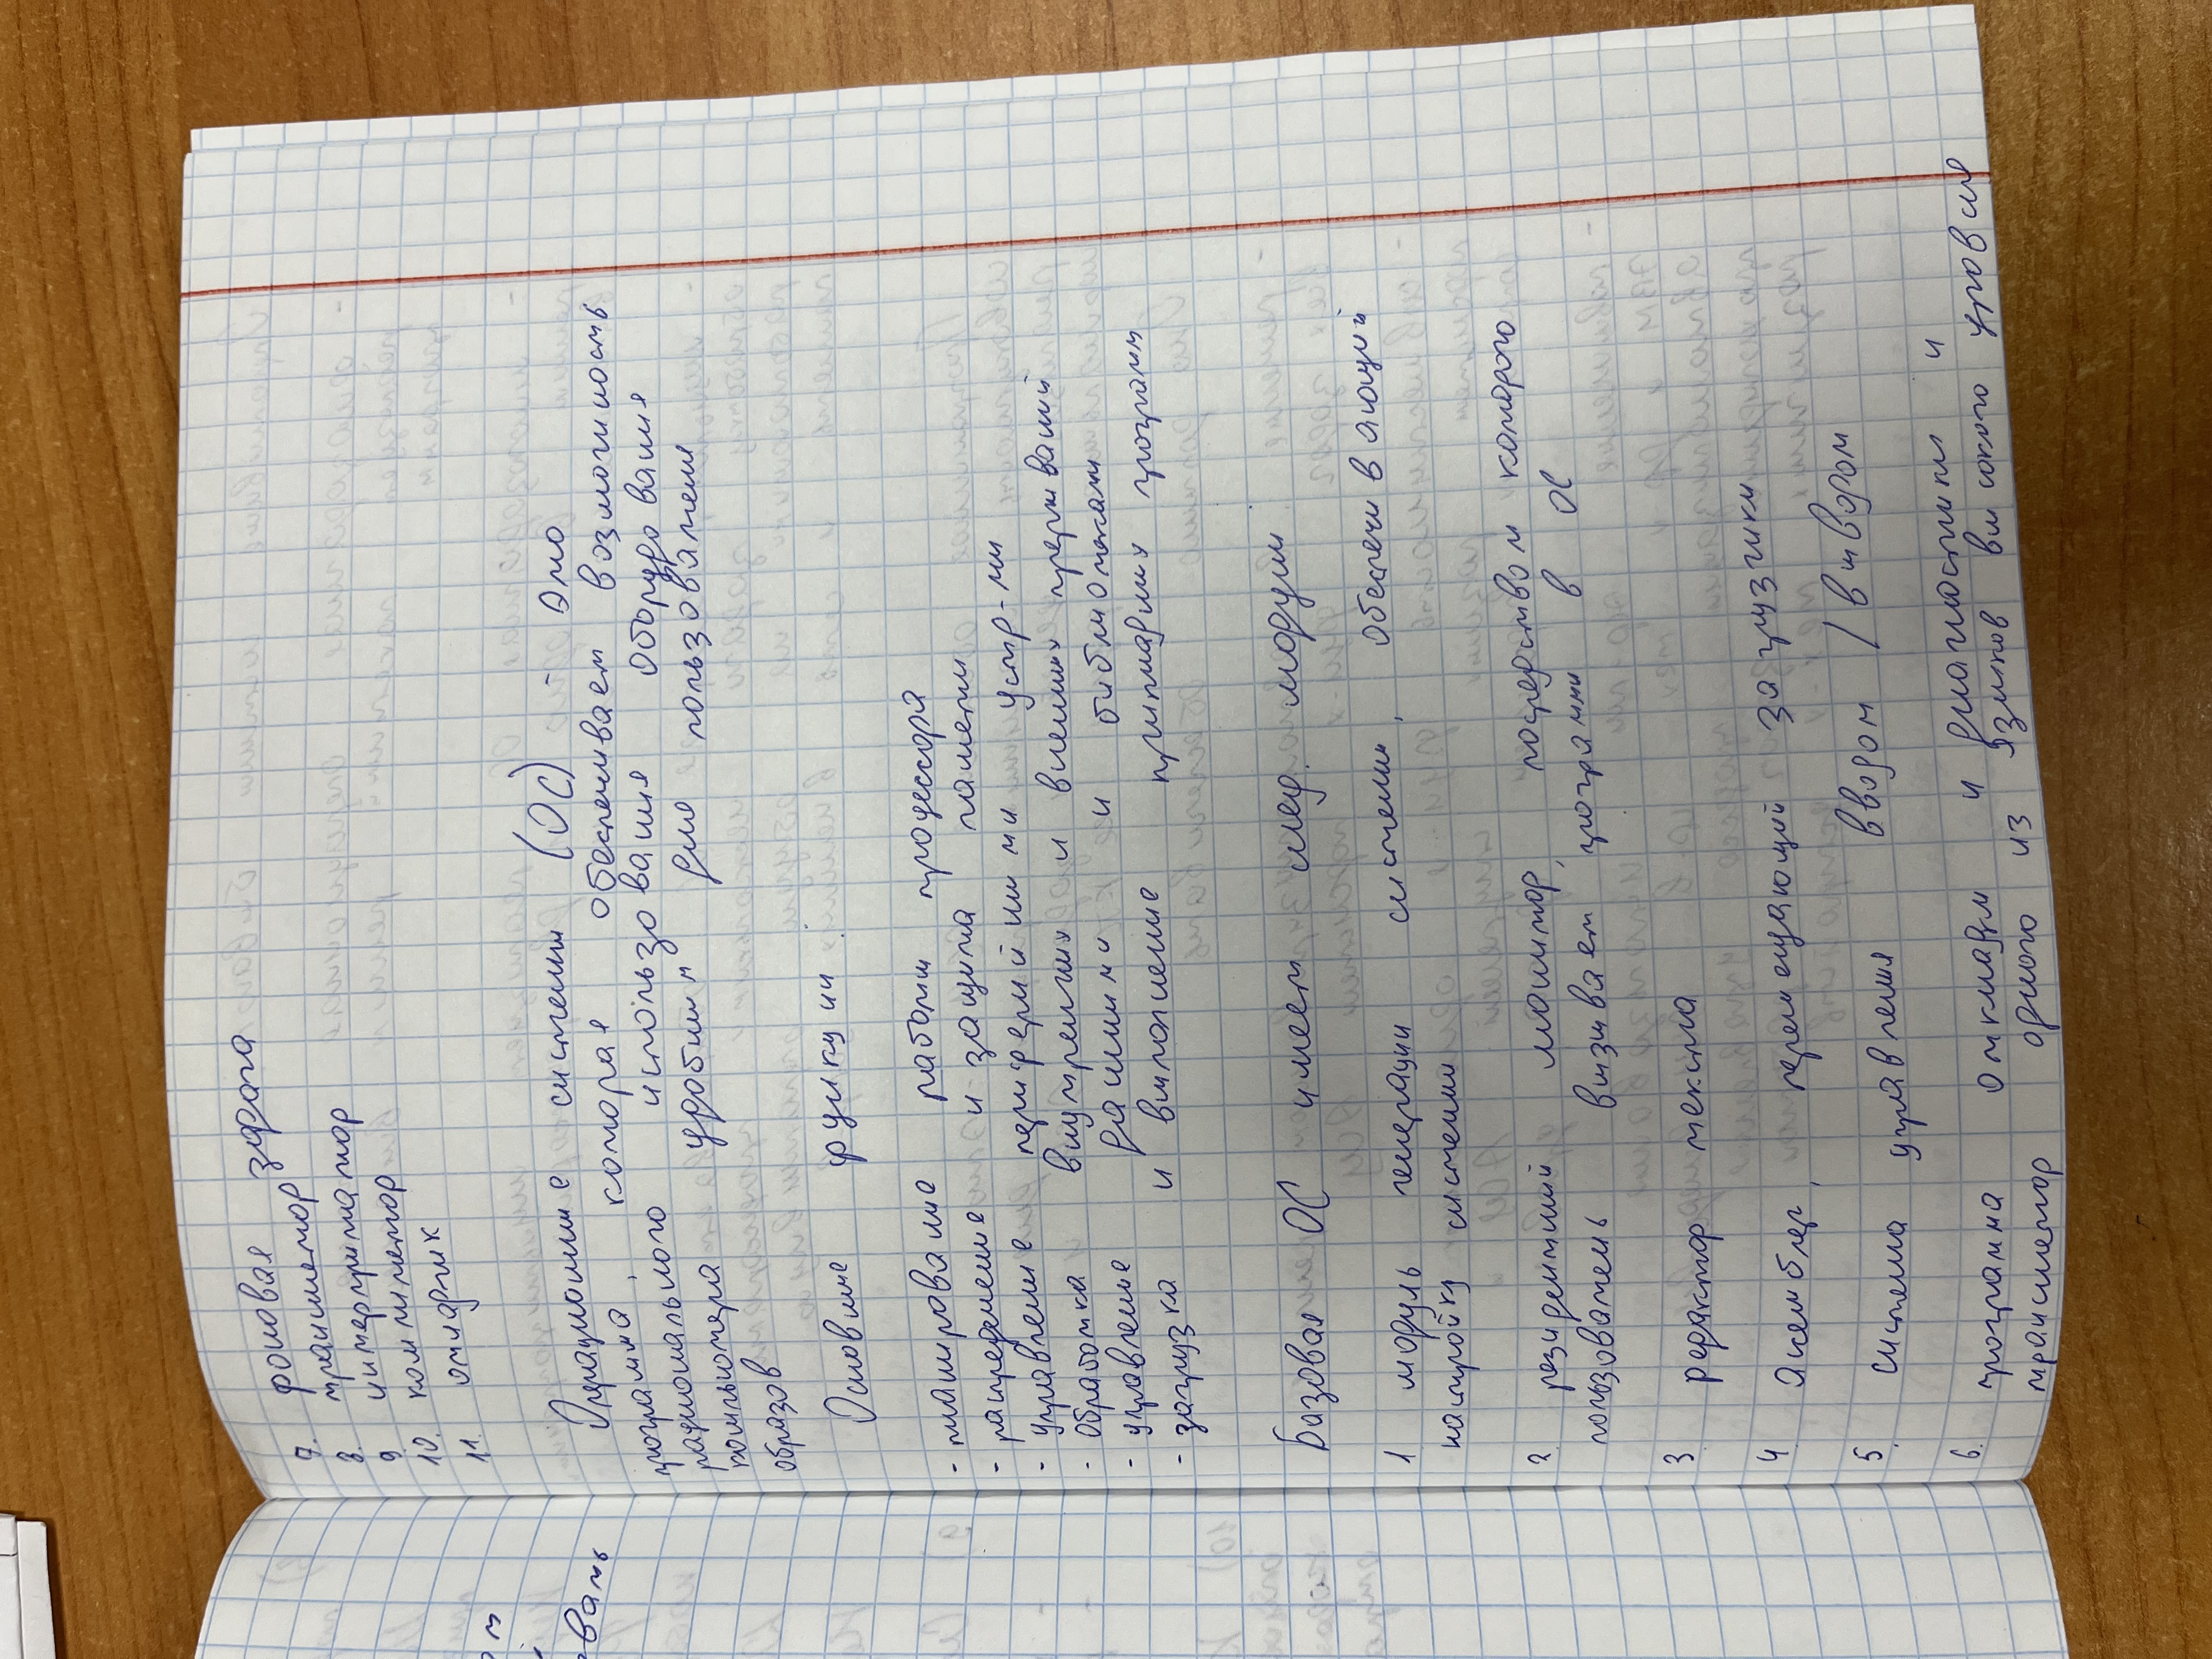 7. фоновая здача
8. транслетор
9. интерпритатор
10. компилетор
11. отладчик
Операционные системы (ОС) - Это
программа, которая обеспечивает возможность
рационального использования оборудования
компьютера удобным для пользователя
образов
Основные функции:
- планирование работы процессора
- распределение и защита памяти
- управление перифериными устр-ми
- обработка внутрених и внешних прерываний
- управление данными и библиотеками
- загрузка и выполнение прикладных программ
Базовая ОС имеет след. модули
1 модуль генерации системы, обеспечивающий
настройку системы
2. резидентный монитор, посредством которого
пользователь вызывает программы в ОС
3 редактор текста
4 Асемблер, перемещающий загрузчики
5. система управления вводом / выводом
6. программа откладки и диагностики и
транслетор одного из языков высокого уровня
ом
вать